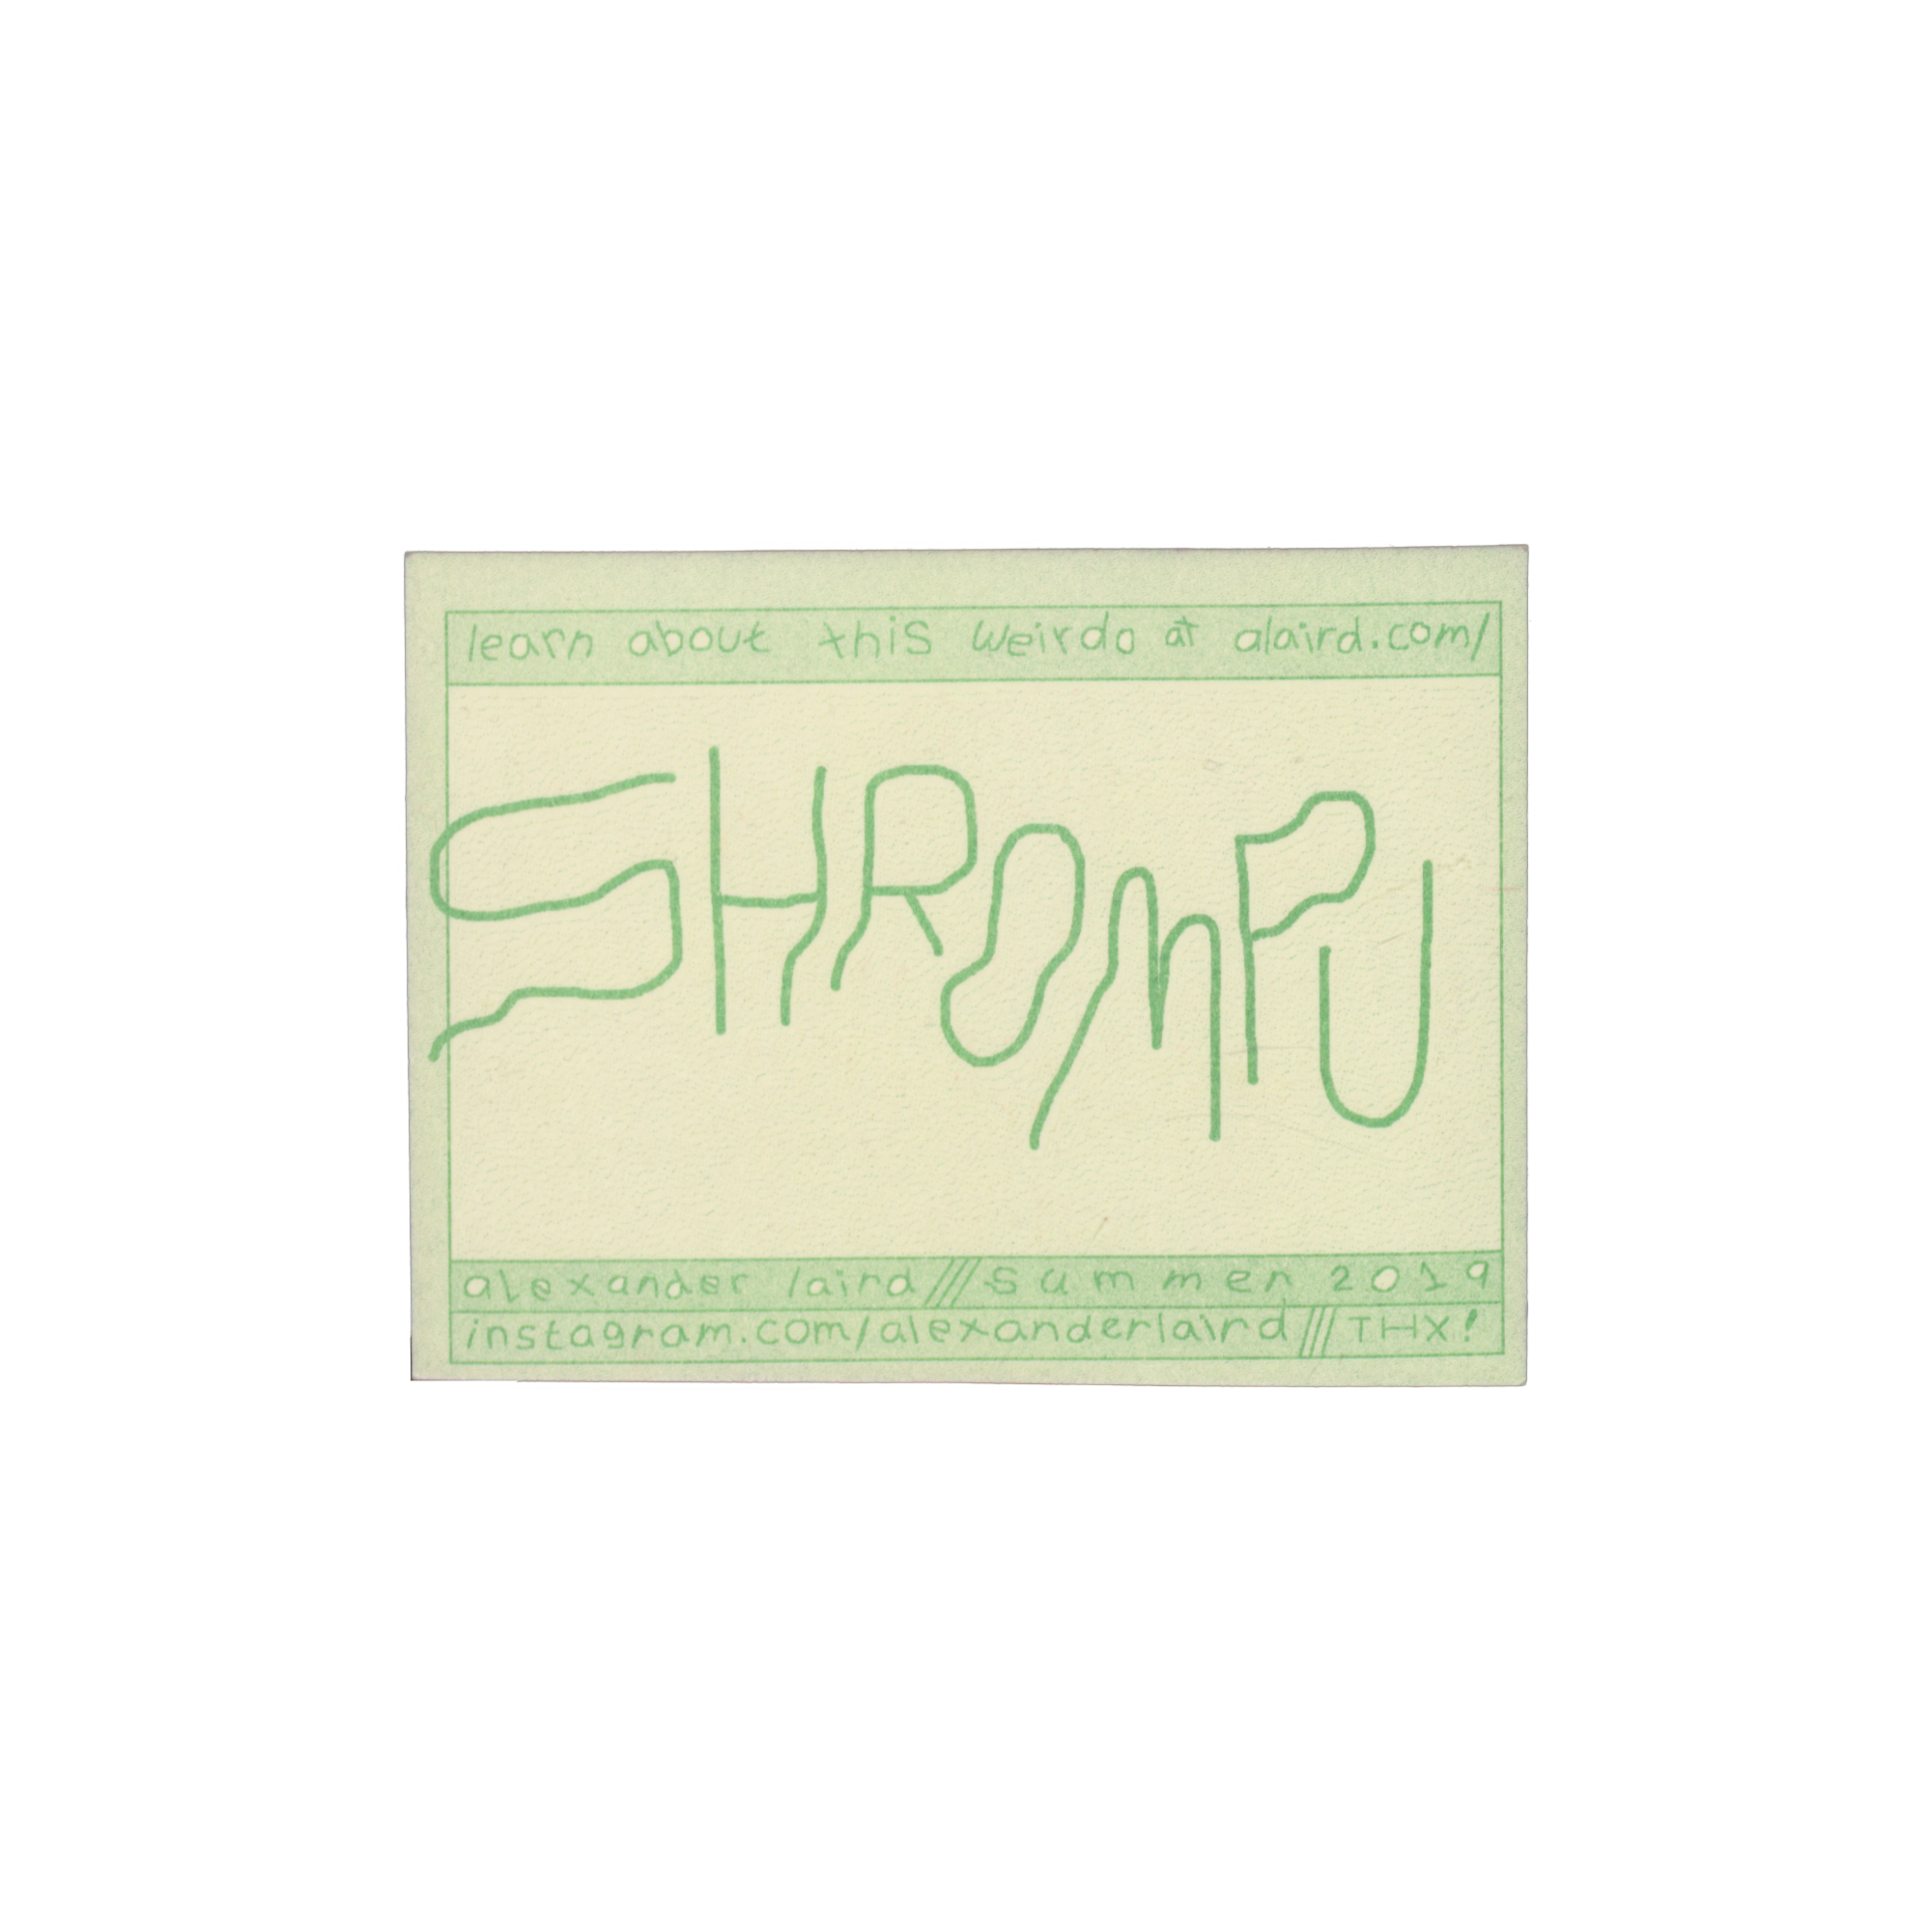 learn about this weirdo at alaird.com/
SHROMPU
alexander laird///summer 2019
instagram.com/alexanderlaird///THX!